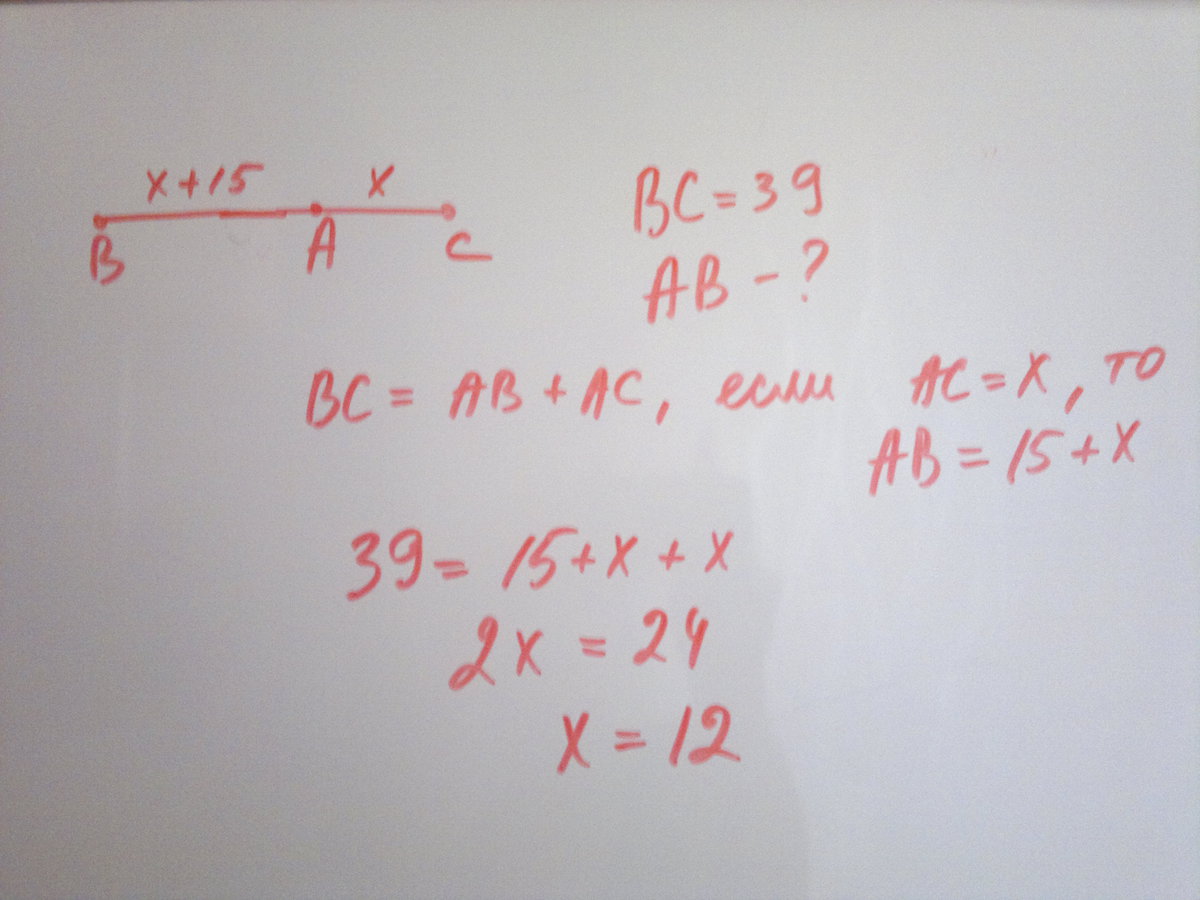 x+15 x
B A C
BC=39
AB-?
BC= AB+AC, если AC=x, то
AB=15+x
39=15+x+x
2x=24
x=12